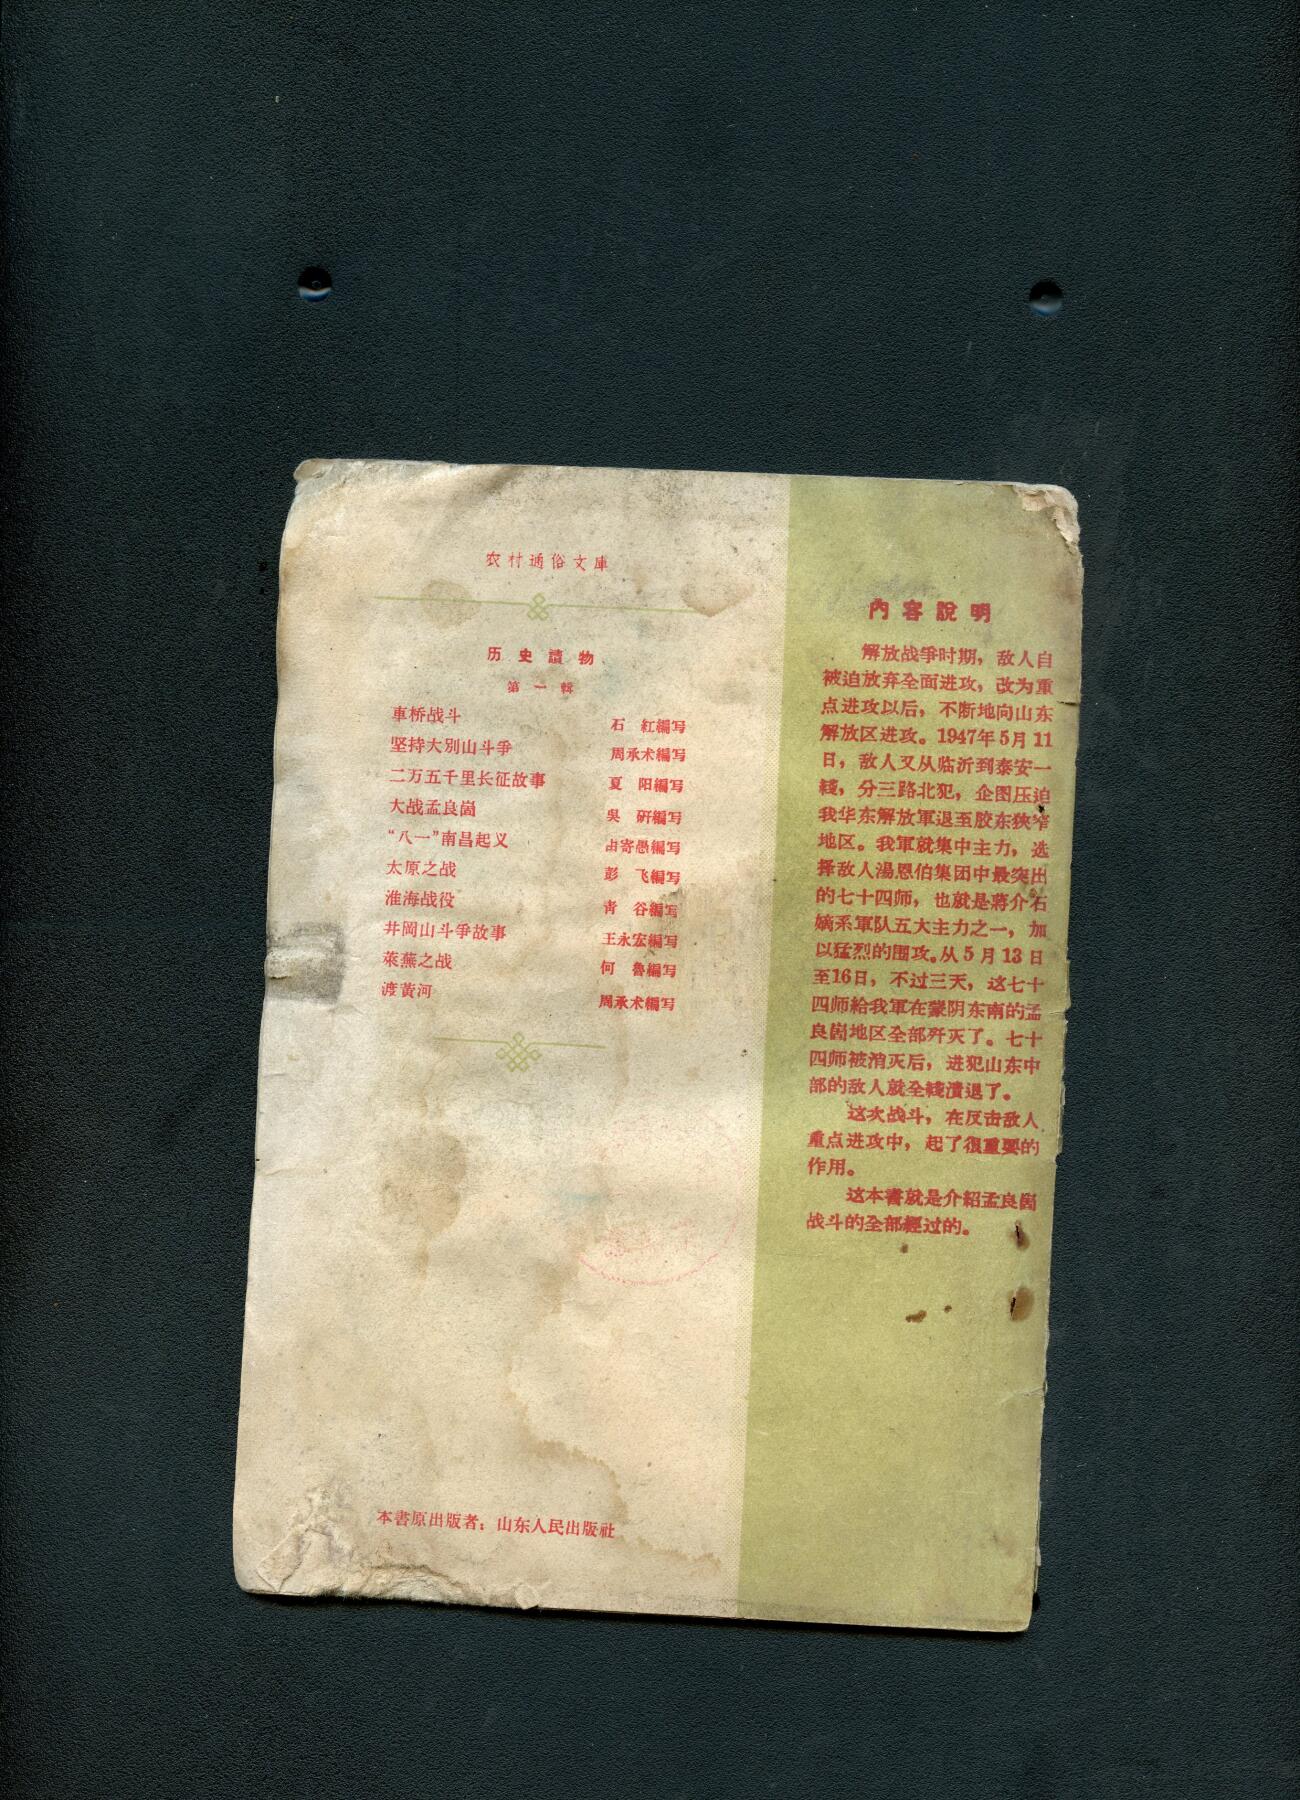 农村通俗文庫
历史讀物
第一輯
車桥战斗 石紅編写
坚持大别山斗爭 周承术編写
二万五千里长征故事 夏阳編写
大战孟良崮 吳研編写
“八一”南昌起义 寄愚編写
太原之战 彭飞編写
淮海战役 青谷編写
井岡山斗爭故事 王永宏編写
萊蕪之战 何魯編写
渡黄河 周承术編写
本書原出版者：山东人民出版社
內容說明
解放战爭时期，敌人自
被迫放弃全面进攻，改为重
点进攻以后，不断地向山东
解放区进攻。1947年5月11
日，敌人又从临沂到泰安一
綫，分三路北犯，企图压迫
我华东解放軍退至胶东狹窄
地区。我軍就集中主力，选
择敌人湯恩伯集团中最突出
的七十四师，也就是蔣介石
嫡系軍队五大主力之一，加
以猛烈的围攻。从5月13日
至16日，不过三天，这七十
四师給我軍在蒙阴东南的孟
良崮地区全部歼灭了。七十
四师被消灭后，进犯山东中
部的敌人就全綫潰退了。
这次战斗，在反击敌人
重点进攻中，起了很重要的
作用。
这本書就是介紹孟良崮
战斗的全部經过的。